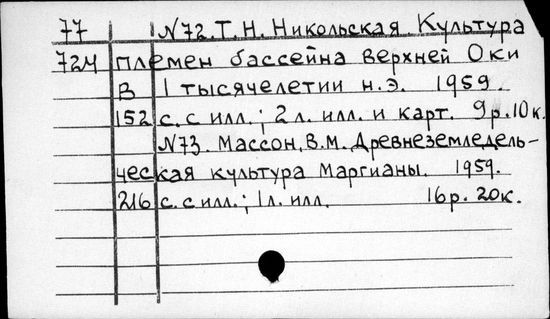 77 N72. Т. Н. Никольская. Культура
72М племен бассейна верхней Оки
в 1 тысячелетии н.э. 1959.
152 с. с илл.; 2 л. илл. и карт. 9р.10к.
N73. Массон, В.М. Древнеземледель-
ческая культура Маргианы. 1959.
216 с. с илл.; 1л. илл. 16р. 20к.